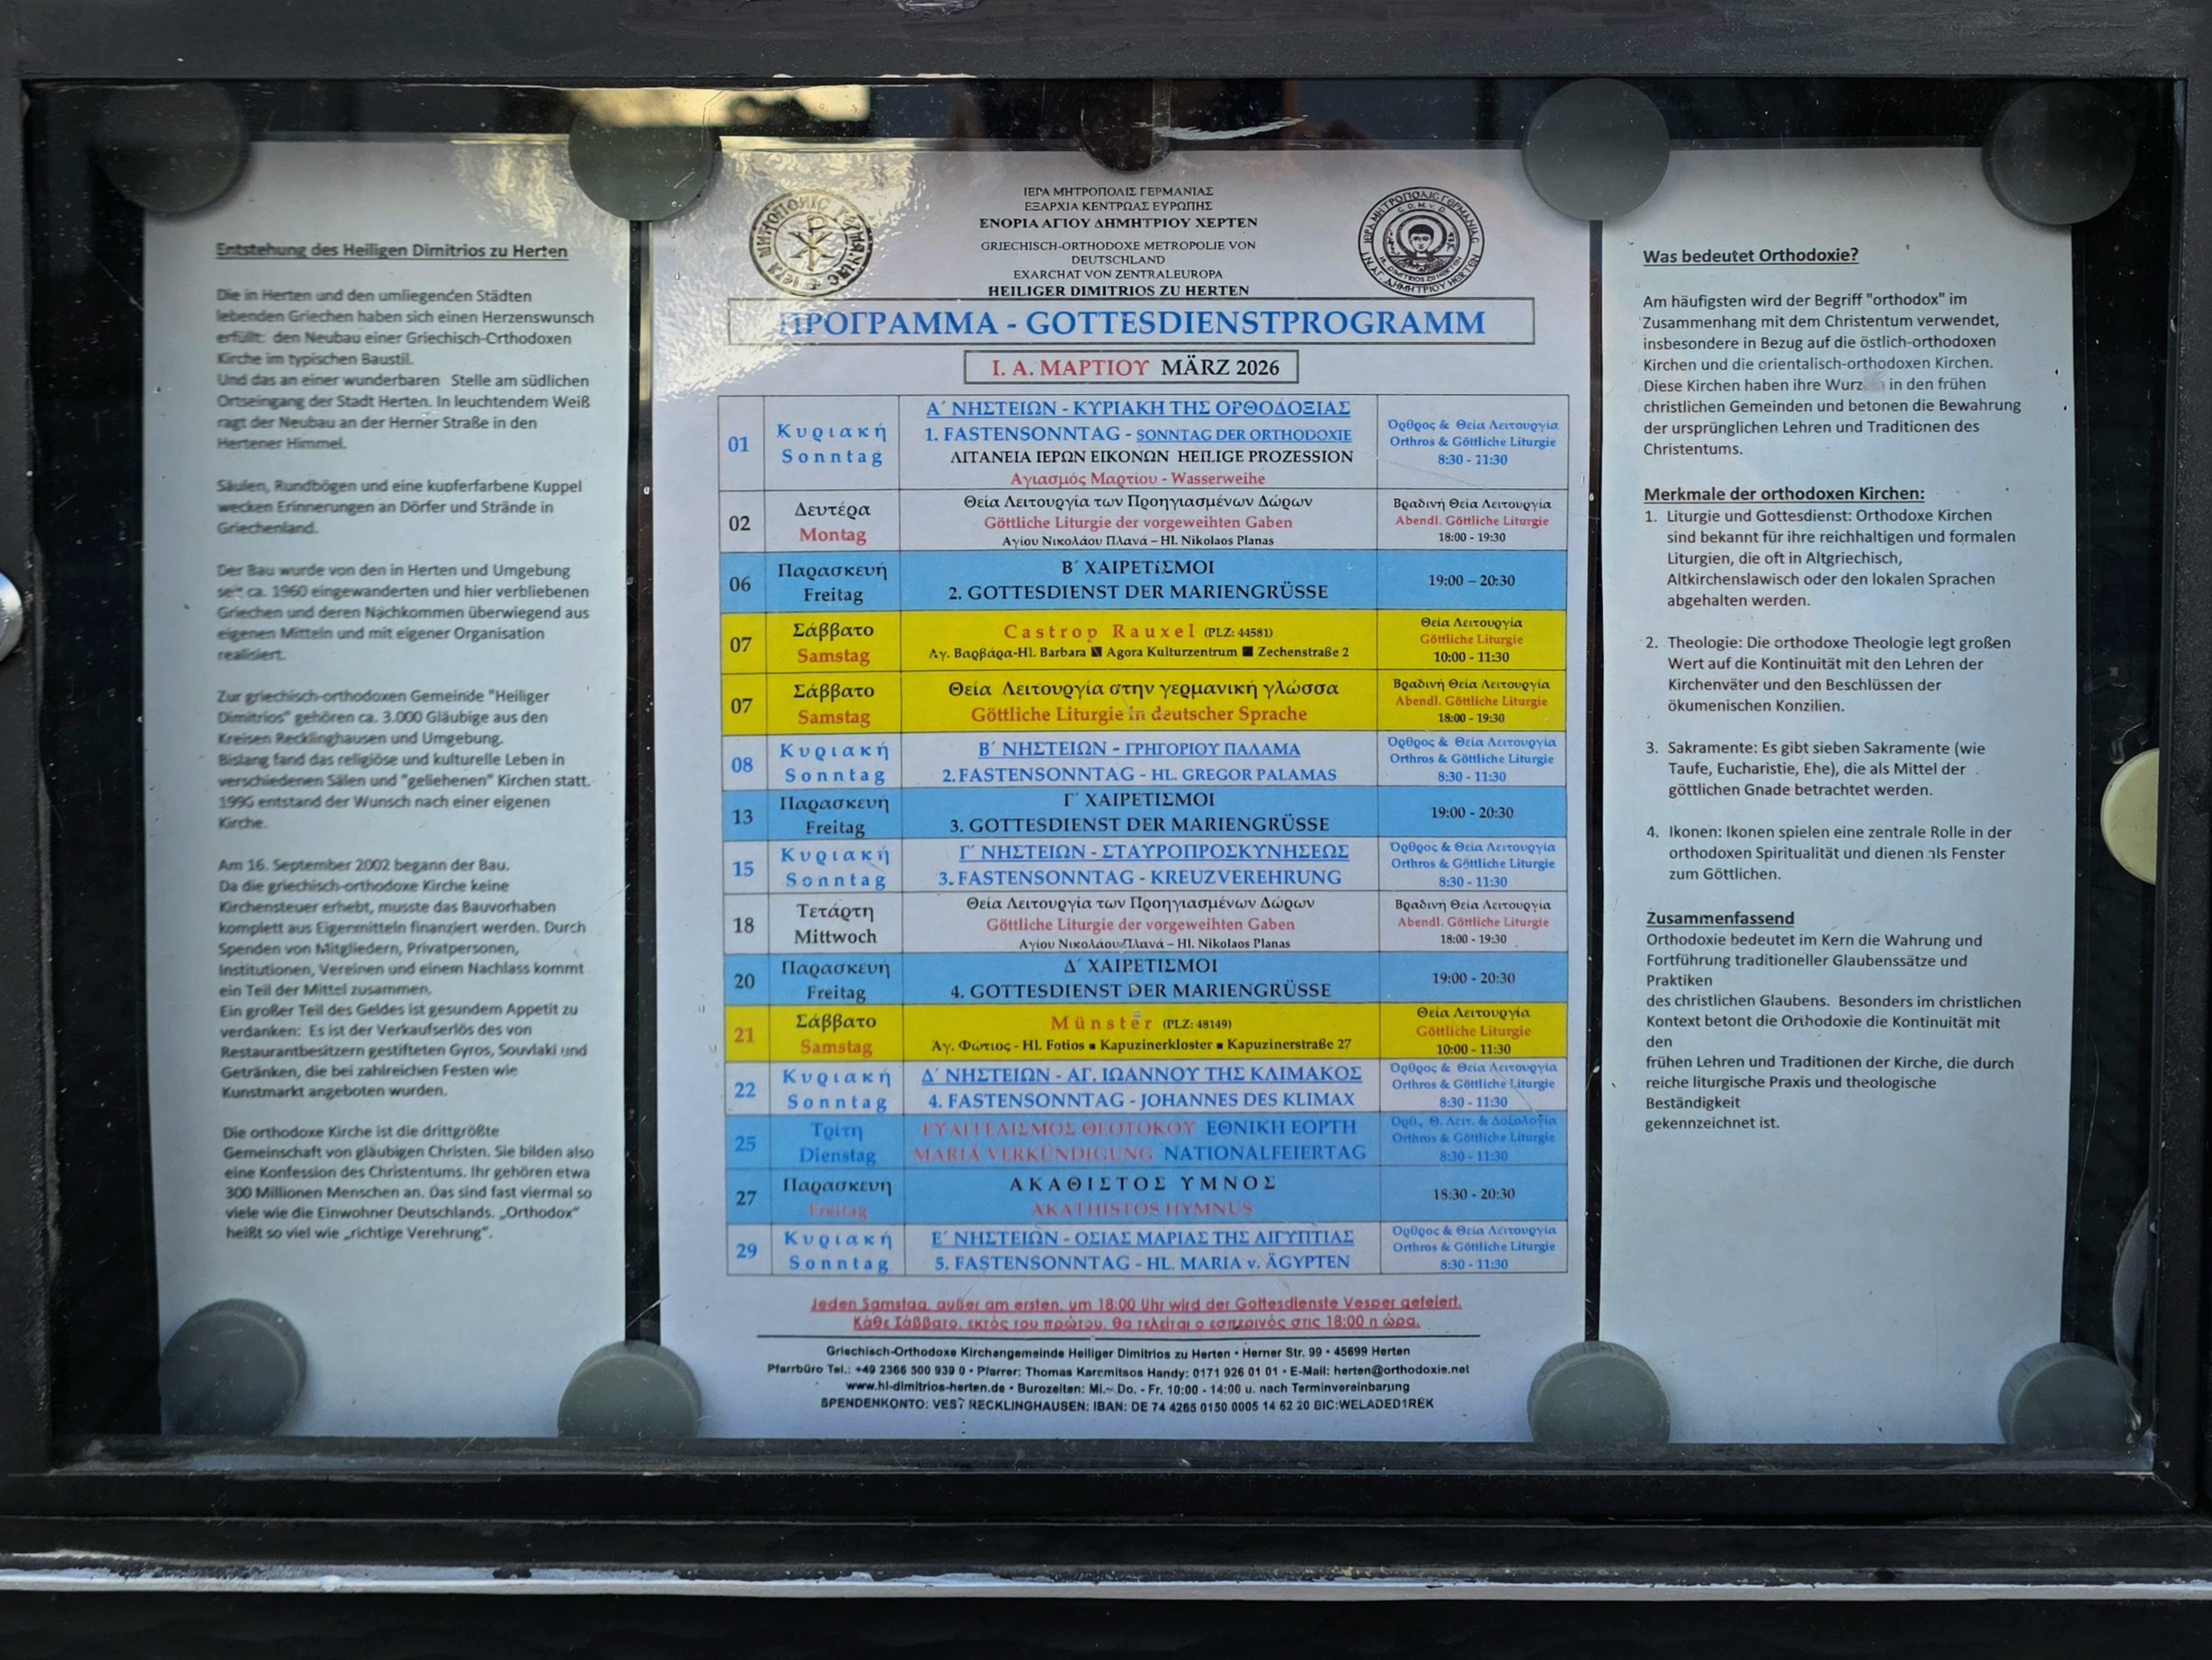 Entstehung des Heiligen Dimitrios zu Herten
Die in Herten und den umliegenden Städten
lebenden Griechen haben sich einen Herzenswunsch
erfüllt: den Neubau einer Griechisch-Orthodoxen
Kirche im typischen Baustil.
Und das an einer wunderbaren Stelle am südlichen
Ortseingang der Stadt Herten. In leuchtendem Weiß
ragt der Neubau an der Herner Straße in den
Hertener Himmel.
Säulen, Rundbögen und eine kupferfarbene Kuppel
wecken Erinnerungen an Dörfer und Strände in
Griechenland.
Der Bau wurde von den in Herten und Umgebung
seit ca. 1960 eingewanderten und hier verbliebenen
Griechen und deren Nachkommen überwiegend aus
eigenen Mitteln und mit eigener Organisation
realisiert.
Zur griechisch-orthodoxen Gemeinde "Heiliger
Dimitrios" gehören ca. 3.000 Gläubige aus den
Kreisen Recklinghausen und Umgebung.
Bislang fand das religiöse und kulturelle Leben in
verschiedenen Sälen und "geliehenen" Kirchen statt.
1996 entstand der Wunsch nach einer eigenen
Kirche.
Am 16. September 2002 begann der Bau.
Da die griechisch-orthodoxe Kirche keine
Kirchensteuer erhebt, musste das Bauvorhaben
komplett aus Eigenmitteln finanziert werden. Durch
Spenden von Mitgliedern, Privatpersonen,
Institutionen, Vereinen und einem Nachlass kommt
ein Teil der Mittel zusammen.
Ein großer Teil des Geldes ist gesundem Appetit zu
verdanken: Es ist der Verkaufserlös des von
Restaurantbesitzern gestifteten Gyros, Souvlaki und
Getränken, die bei zahlreichen Festen wie
Kunstmarkt angeboten wurden.
Die orthodoxe Kirche ist die drittgrößte
Gemeinschaft von gläubigen Christen. Sie bilden also
eine Konfession des Christentums. Ihr gehören etwa
300 Millionen Menschen an. Das sind fast viermal so
viele wie die Einwohner Deutschlands. „Orthodox"
heißt so viel wie „richtige Verehrung".
ΙΕΡΑ ΜΗΤΡΟΠΟΛΙΣ ΓΕΡΜΑΝΙΑΣ
ΕΞΑΡΧΙΑ ΚΕΝΤΡΩΑΣ ΕΥΡΩΠΗΣ
ΕΝΟΡΙΑ ΑΓΙΟΥ ΔΗΜΗΤΡΙΟΥ ΧΕΡΤΕΝ
GRIECHISCH-ORTHODOXE METROPOLIE VON
DEUTSCHLAND
EXARCHAT VON ZENTRALEUROPA
HEILIGER DIMITRIOS ZU HERTEN
ΠΡΟΓΡΑΜΜΑ - GOTTESDIENSTPROGRAMM
Ι. Α. ΜΑΡΤΙΟΥ MÄRZ 2026
01 Κυριακή Sonntag
Α´ ΝΗΣΤΕΙΩΝ - ΚΥΡΙΑΚΗ ΤΗΣ ΟΡΘΟΔΟΞΙΑΣ
1. FASTENSONNTAG - SONNTAG DER ORTHODOXIE
ΛΙΤΑΝΕΙΑ ΙΕΡΩΝ ΕΙΚΟΝΩΝ HEILIGE PROZESSION
Αγιασμός Μαρτίου - Wasserweihe
Όρθρος & Θεία Λειτουργία
Orthros & Göttliche Liturgie
8:30 - 11:30
02 Δευτέρα Montag
Θεία Λειτουργία των Προηγιασμένων Δώρων
Göttliche Liturgie der vorgeweihten Gaben
Αγίου Νικολάου Πλανά – Hl. Nikolaos Planas
Βραδινή Θεία Λειτουργία
Abendl. Göttliche Liturgie
18:00 - 19:30
06 Παρασκευή Freitag
Β´ ΧΑΙΡΕΤΙΣΜΟΙ
2. GOTTESDIENST DER MARIENGRÜSSE
19:00 – 20:30
07 Σάββατο Samstag
Castrop Rauxel (PLZ: 44581)
Αγ. Βαρβάρα-Hl. Barbara ■ Agora Kulturzentrum ■ Zechenstraße 2
Θεία Λειτουργία
Göttliche Liturgie
10:00 - 11:30
07 Σάββατο Samstag
Θεία Λειτουργία στην γερμανική γλώσσα
Göttliche Liturgie in deutscher Sprache
Βραδινή Θεία Λειτουργία
Abendl. Göttliche Liturgie
18:00 - 19:30
08 Κυριακή Sonntag
Β´ ΝΗΣΤΕΙΩΝ - ΓΡΗΓΟΡΙΟΥ ΠΑΛΑΜΑ
2. FASTENSONNTAG - HL. GREGOR PALAMAS
Όρθρος & Θεία Λειτουργία
Orthros & Göttliche Liturgie
8:30 - 11:30
13 Παρασκευή Freitag
Γ´ ΧΑΙΡΕΤΙΣΜΟΙ
3. GOTTESDIENST DER MARIENGRÜSSE
19:00 - 20:30
15 Κυριακή Sonntag
Γ´ ΝΗΣΤΕΙΩΝ - ΣΤΑΥΡΟΠΡΟΣΚΥΝΗΣΕΩΣ
3. FASTENSONNTAG - KREUZVEREHRUNG
Όρθρος & Θεία Λειτουργία
Orthros & Göttliche Liturgie
8:30 - 11:30
18 Τετάρτη Mittwoch
Θεία Λειτουργία των Προηγιασμένων Δώρων
Göttliche Liturgie der vorgeweihten Gaben
Αγίου Νικολάου Πλανά – Hl. Nikolaos Planas
Βραδινή Θεία Λειτουργία
Abendl. Göttliche Liturgie
18:00 - 19:30
20 Παρασκευή Freitag
Δ´ ΧΑΙΡΕΤΙΣΜΟΙ
4. GOTTESDIENST DER MARIENGRÜSSE
19:00 - 20:30
21 Σάββατο Samstag
Münster (PLZ: 48149)
Άγ. Φώτιος - Hl. Fotios ■ Kapuzinerkloster ■ Kapuzinerstraße 27
Θεία Λειτουργία
Göttliche Liturgie
10:00 - 11:30
22 Κυριακή Sonntag
Δ´ ΝΗΣΤΕΙΩΝ - ΑΓ. ΙΩΑΝΝΟΥ ΤΗΣ ΚΛΙΜΑΚΟΣ
4. FASTENSONNTAG - JOHANNES DES KLIMAX
Όρθρος & Θεία Λειτουργία
Orthros & Göttliche Liturgie
8:30 - 11:30
25 Τρίτη Dienstag
ΕΥΑΓΓΕΛΙΣΜΟΣ ΘΕΟΤΟΚΟΥ ΕΘΝΙΚΗ ΕΟΡΤΗ
MARIÄ VERKÜNDIGUNG NATIONALFEIERTAG
Ορθ., Θ. Λειτ. & Δοξολογία
Orthros & Göttliche Liturgie
8:30 - 11:30
27 Παρασκευή Freitag
ΑΚΑΘΙΣΤΟΣ ΥΜΝΟΣ
AKATHISTOS HYMNUS
18:30 - 20:30
29 Κυριακή Sonntag
Ε´ ΝΗΣΤΕΙΩΝ - ΟΣΙΑΣ ΜΑΡΙΑΣ ΤΗΣ ΑΙΓΥΠΤΙΑΣ
5. FASTENSONNTAG - HL. MARIA v. ÄGYPTEN
Όρθρος & Θεία Λειτουργία
Orthros & Göttliche Liturgie
8:30 - 11:30
Jeden Samstag, außer am ersten, um 18:00 Uhr wird der Gottesdienste Vesper gefeiert.
Κάθε Σάββατο, εκτός του πρώτου, θα τελείται ο εσπερινός στις 18:00 η ώρα.
Griechisch-Orthodoxe Kirchengemeinde Heiliger Dimitrios zu Herten • Herner Str. 99 • 45699 Herten
Pfarrbüro Tel.: +49 2366 500 939 0 • Pfarrer: Thomas Karamitsos Handy: 0171 926 01 01 • E-Mail: herten@orthodoxie.net
www.hl-dimitrios-herten.de • Burozeiten: Mi.- Do. - Fr. 10:00 - 14:00 u. nach Terminvereinbarung
SPENDENKONTO: VEST RECKLINGHAUSEN: IBAN: DE 74 4265 0150 0005 14 62 20 BIC:WELADED1REK
Was bedeutet Orthodoxie?
Am häufigsten wird der Begriff "orthodox" im
Zusammenhang mit dem Christentum verwendet,
insbesondere in Bezug auf die östlich-orthodoxen
Kirchen und die orientalisch-orthodoxen Kirchen.
Diese Kirchen haben ihre in den frühen
christlichen Gemeinden und betonen die Bewahrung
der ursprünglichen Lehren und Traditionen des
Christentums.
Merkmale der orthodoxen Kirchen:
1. Liturgie und Gottesdienst: Orthodoxe Kirchen
sind bekannt für ihre reichhaltigen und formalen
Liturgien, die oft in Altgriechisch,
Altkirchenslawisch oder den lokalen Sprachen
abgehalten werden.
2. Theologie: Die orthodoxe Theologie legt großen
Wert auf die Kontinuität mit den Lehren der
Kirchenväter und den Beschlüssen der
ökumenischen Konzilien.
3. Sakramente: Es gibt sieben Sakramente (wie
Taufe, Eucharistie, Ehe), die als Mittel der
göttlichen Gnade betrachtet werden.
4. Ikonen: Ikonen spielen eine zentrale Rolle in der
orthodoxen Spiritualität und dienen als Fenster
zum Göttlichen.
Zusammenfassend
Orthodoxie bedeutet im Kern die Wahrung und
Fortführung traditioneller Glaubenssätze und
Praktiken
des christlichen Glaubens. Besonders im christlichen
Kontext betont die Orthodoxie die Kontinuität mit
den
frühen Lehren und Traditionen der Kirche, die durch
reiche liturgische Praxis und theologische
Beständigkeit
gekennzeichnet ist.